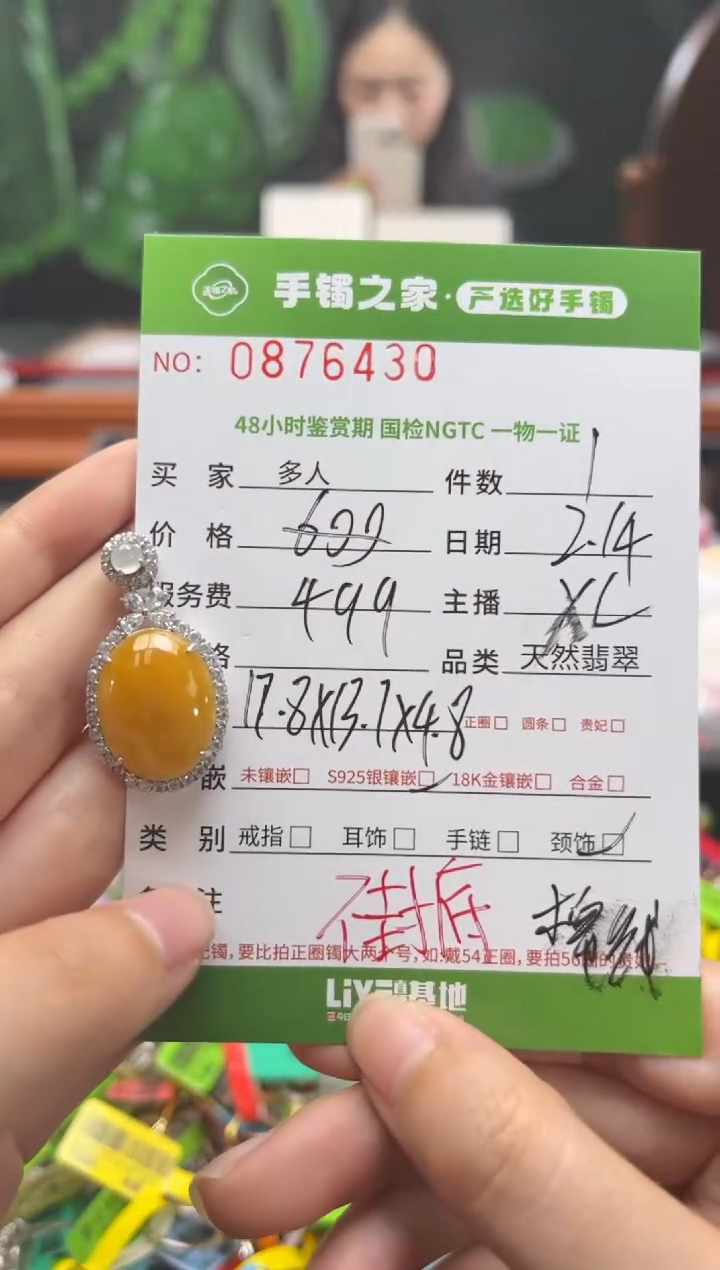 手镯之家·严选好手镯
NO: 0876430
48小时鉴赏期 国检NGTC 一物一证
买 家 多人 件数 1
价 格 699 日期 2.14
服务费 499 主播 XL
格 品类 天然翡翠
17.8X13.7X4.8 正圈 圆条 贵妃
嵌 未镶嵌 S925银镶嵌 18K金镶嵌 合金
类 别 戒指 耳饰 手链 颈饰
注
镯,要比拍正圈镯大两个号,如:戴54正圈,要拍56
基地